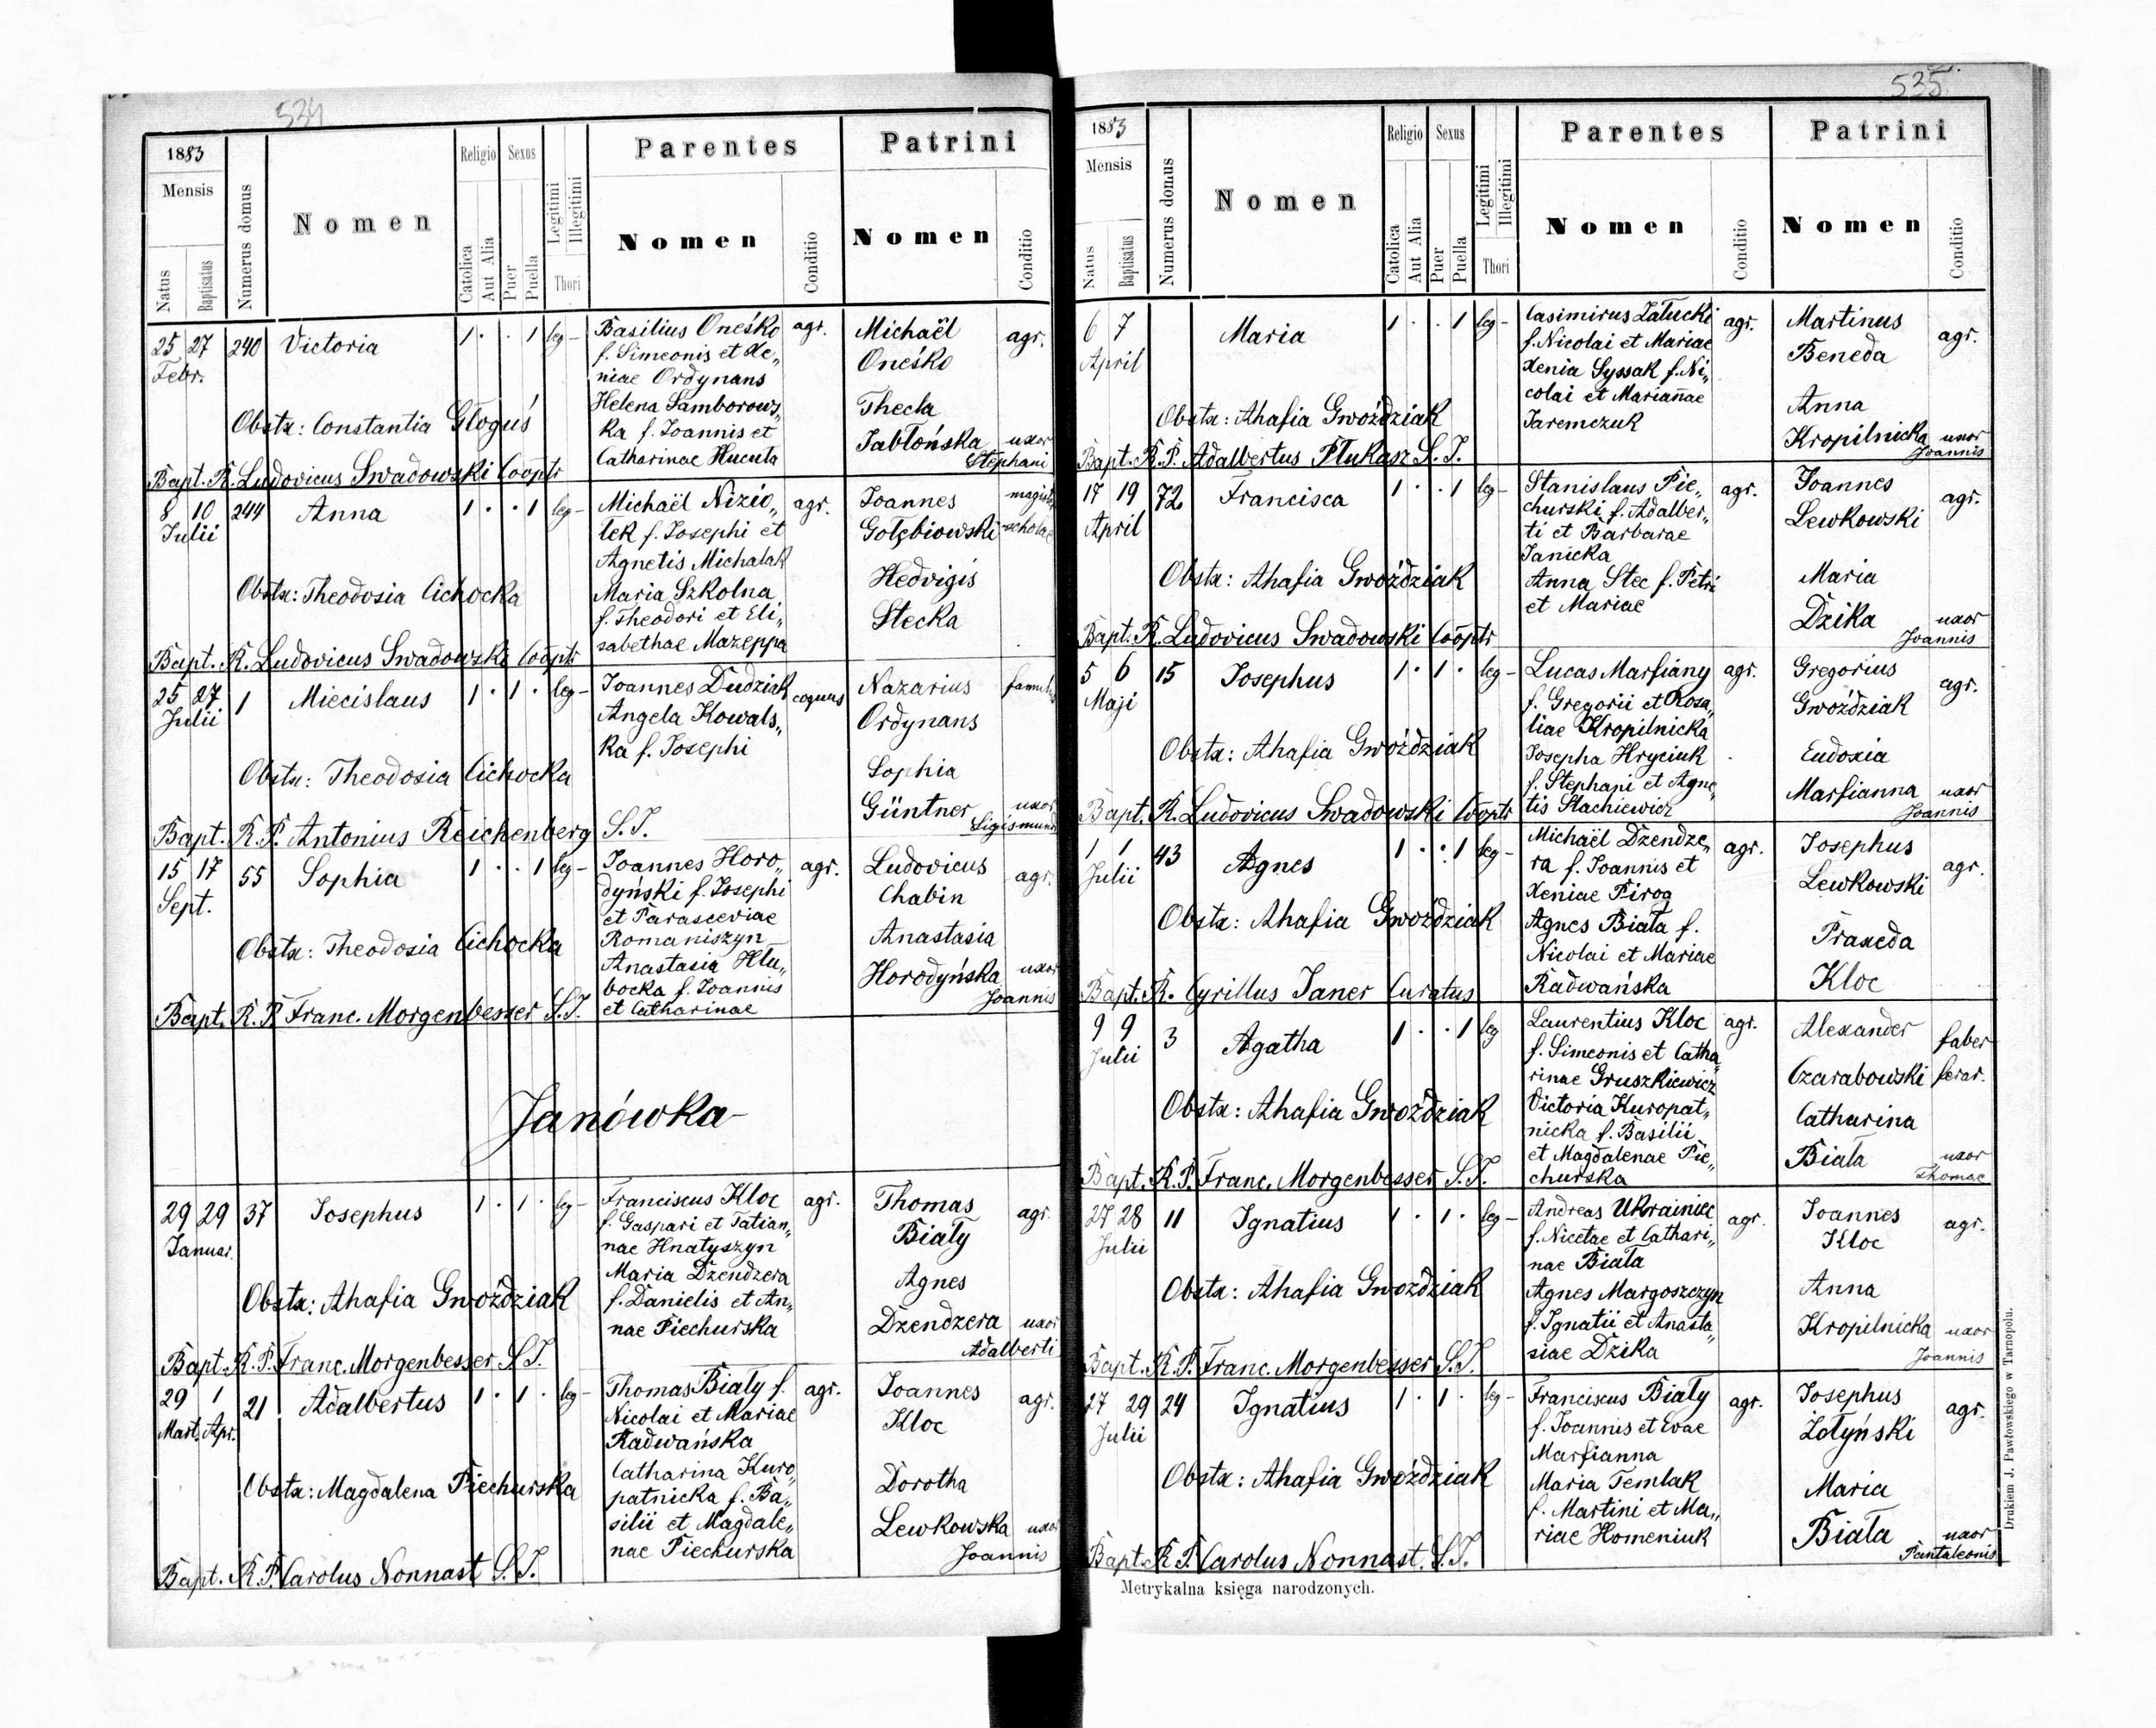 534
1883
Mensis
Natus
Baptisatus
Numerus domus
Nomen
Religio
Catolica
Aut Alia
Sexus
Puer
Puella
Legitimi
Illegitimi
Thori
Parentes
Nomen
Conditio
Patrini
Nomen
Conditio
25 27 240 Victoria 1 · · 1 leg- Basilius Oneśko agr. Michaël agr.
Febr. f. Simeonis et Xe„ Oneśko
niae Ordynans
Helena Samborows„ Thecla
Obstx: Constantia Głoguś ka f. Joannis et Jabłońska uxor
Catharinae Hucuła Stephani
Bapt. R. Ludovicus Swadowski Cooptr
8 10 244 Anna 1 · · 1 leg- Michaël Nizio„ agr. Joannes magistr
Julii lek f. Josephi et Gołębiowski scholae
Agnetis Michalak
Obstx: Theodosia Cichocka Maria Szkolna Hedvigis
f. Theodori et Eli„ Stecka
sabethae Mazeppa
Bapt. R. Ludovicus Swadowski Cooptr
25 27 1 Miecislaus 1 · 1 · leg- Joannes Dudziak coquus Nazarius famulus
Julii Angela Kowals„ Ordynans
ka f. Josephi
Obstx: Theodosia Cichocka Sophia
Güntner uxor
Sigismundi
Bapt. R. P. Antonius Reichenberg S.J.
15 17 55 Sophia 1 · · 1 leg- Joannes Horo„ agr. Ludovicus agr.
Sept. dyński f. Josephi Chabin
et Parasceviae
Obstx: Theodosia Cichocka Romaniszyn Anastasia
Anastasia Hlu„ Horodyńska uxor
bocka f. Joannis Joannis
Bapt. R. P. Franc. Morgenbesser S.J. et Catharinae
Janówka
29 29 37 Josephus 1 · 1 · leg- Franciscus Kloc agr. Thomas agr.
Januar. f. Gaspari et Tatian„ Biały
nae Hnatyszyn
Maria Dzendzera Agnes
Obstx: Ahafia Gwoździak f. Danielis et An„ Dzendzera uxor
nae Piechurska Adalberti
Bapt. R. P. Franc. Morgenbesser S.J.
29 1 21 Adalbertus 1 · 1 · leg- Thomas Biały f. agr. Joannes agr.
Mart. Apr. Nicolai et Mariae Kloc
Radwańska
Catharina Kuro„ Dorotha
Obstx: Magdalena Piechurska patnicka f. Ba„ Lewkowska uxor
silii et Magdale„ Joannis
nae Piechurska
Bapt. R. P. Carolus Nonnast S.J.
535
1883
Mensis
Natus
Baptisatus
Numerus domus
Nomen
Religio
Catolica
Aut Alia
Sexus
Puer
Puella
Legitimi
Illegitimi
Thori
Parentes
Nomen
Conditio
Patrini
Nomen
Conditio
6 7 Maria 1 · · 1 leg- Casimirus Załucki agr. Martinus agr.
April f. Nicolai et Mariae Beneda
Xenia Syssak f. Ni„
colai et Mariañae Anna
Obstx: Ahafia Gwoździak Jaremczuk Kropilnicka uxor
Joannis
Bapt. R. P. Adalbertus Plukasz S.J.
17 19 72 Francisca 1 · · 1 leg- Stanislaus Pie„ agr. Joannes agr.
April churski f. Adalber„ Lewkowski
ti et Barbarae
Janicka
Obstx: Ahafia Gwoździak Anna Stec f. Petri Maria
et Mariae Dzika uxor
Joannis
Bapt. R. Ludovicus Swadowski Cooptr
5 6 15 Josephus 1 · 1 · leg- Lucas Marfiány agr. Gregorius agr.
Maji f. Gregorii et Rosa„ Gwoździak
liae Kropilnicka
Obstx: Ahafia Gwoździak Josepha Hryciuk Eudoxia
f. Stephani et Agne„ Marfianna uxor
tis Stachiewicz Joannis
Bapt. R. Ludovicus Swadowski Cooptr
1 1 43 Agnes 1 · · 1 leg- Michaël Dzendze„ agr. Josephus agr.
Julii ra f. Joannis et Lewkowski
Xeniae Pirog
Obstx: Ahafia Gwoździak Agnes Biała f. Praxeda
Nicolai et Mariae Kloc
Radwańska
Bapt. R. Cyrillus Janer Curatus
9 9 3 Agatha 1 · · 1 leg Laurentius Kloc agr. Alexander faber
Julii f. Simeonis et Catha„ Czarabowski ferar.
rinae Gruszkiewicz
Obstx: Ahafia Gwoździak Victoria Kuropat„ Catharina
nicka f. Basilii Biała uxor
et Magdalenae Pie„ Thomae
churska
Bapt. R. P. Franc. Morgenbesser S.J.
27 28 11 Ignatius 1 · 1 · leg- Andreas Ukrainiec agr. Joannes agr.
Julii f. Nicetae et Cathari„ Kloc
nae Biała
Obstx: Ahafia Gwoździak Agnes Margoszczyn Anna
f. Ignatii et Anasta„ Kropilnicka uxor
siae Dzika Joannis
Bapt. R. P. Franc. Morgenbesser S.J.
27 29 24 Ignatius 1 · 1 · leg- Franciscus Biały agr. Josephus agr.
Julii f. Joannis et Evae Żołyński
Marfianna
Obstx: Ahafia Gwoździak Maria Temlak Maria
f. Martini et Ma„ Biała uxor
riae Homeniuk Pantaleonis
Bapt. R. P. Carolus Nonnast. S.J.
Metrykalna księga narodzonych.
Drukiem J. Pawłowskiego w Tarnopolu.